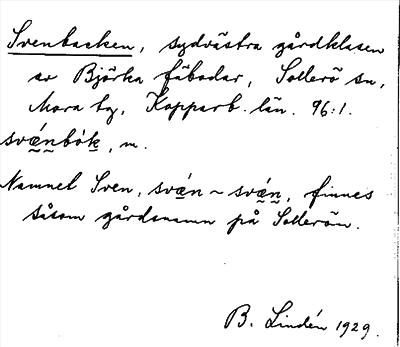 Svenbacken, sydvästra gårdklasen
av Björka fäbodar, Sollerö sn,
Mora tg, Kopparb. län. 96:1.
svǽnbók, m.
Namnet Sven, svǽn ~ svǽn, finnes
såsom gårdsnamn på Sollerön.
B. Lindén 1929.